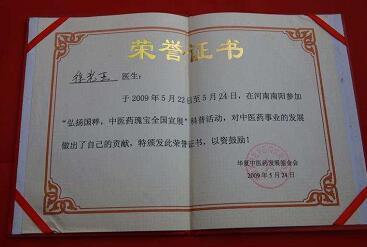 荣誉证书
医生：
于2009年5月22日至5月24日，在河南南阳参加
“弘扬国粹，中医药瑰宝全国宣展”科普活动，对中医药事业的发展
做出了自己的贡献，特颁发此荣誉证书，以资鼓励！
华夏中医药发展基金会
2009年5月24日